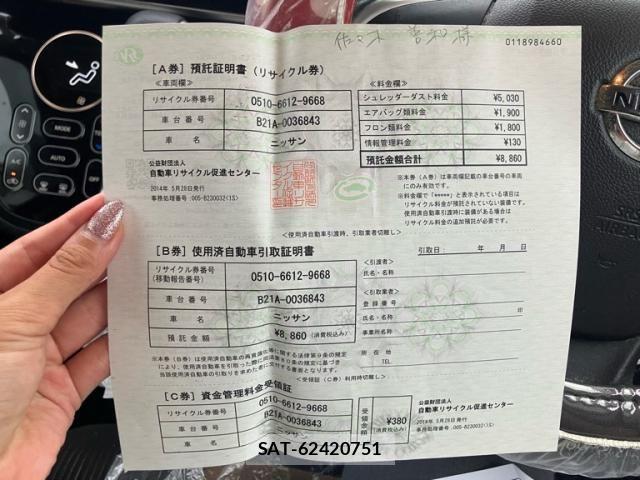 佐々木 善和 様
0118984660
[A券] 預託証明書 (リサイクル券)
≪車両欄≫
リサイクル券番号 0510-6612-9668
車台番号 B21A-0036843
車名 ニッサン
≪料金欄≫
シュレッダーダスト料金 ¥5,030
エアバッグ類料金 ¥1,900
フロン類料金 ¥1,800
情報管理料金 ¥130
預託金額合計 ¥8,860
公益財団法人
自動車リサイクル促進センター
2014年 5月28日発行
事務処理番号:005-B230032(1S)
※本券 (A券) は車両欄記載の車台番号の車両
にのみ有効です。
※料金欄で「*****」と表示されている項目は
リサイクル料金が預託されていない装備です。
使用済自動車引渡時に装備がある場合は
リサイクル料金の追加預託が必要です。
<使用済自動車引渡時、引取業者切離し>
[B券] 使用済自動車引取証明書
引取日: 年 月 日
リサイクル券番号
(移動報告番号) 0510-6612-9668
車台番号 B21A-0036843
車名 ニッサン
預託金額 ¥8,860 (消費税込み)
<引渡者>
氏名・名称
<引取業者>
登録番号
氏名・名称 印
事業所名称
所在地
TEL
※本券 (B券) は使用済自動車の再資源化等に関する法律第9条の規定
により、使用済自動車を引取った際に同法第80条の規定に基づき
当該使用済自動車の引取りを求めた者に交付する書面となります。
<受領証 (C券) 利用時切離し>
[C券] 資金管理料金受領証
リサイクル券番号 0510-6612-9668
車台番号 B21A-0036843
車名 ニッサン
受領金額 ¥380
(消費税込み)
公益財団法人
自動車リサイクル促進センター
2014年 5月28日発行
事務処理番号:005-B230032(1S)
MODE
AUTO
NISSAN
SRS
AIRBAG
SAT-62420751